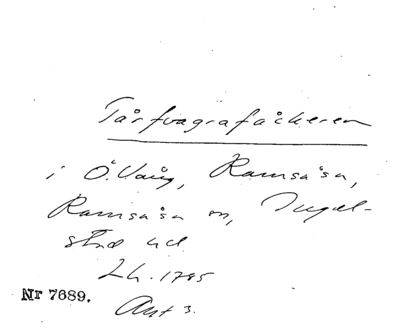 Tårfvagrafsåckeren
i Ö. Vång, Ramsåsa,
Ramsåsa sn, Ingel-
stad hd.
Lh. 1785
Akt 3.
Nr 7689.